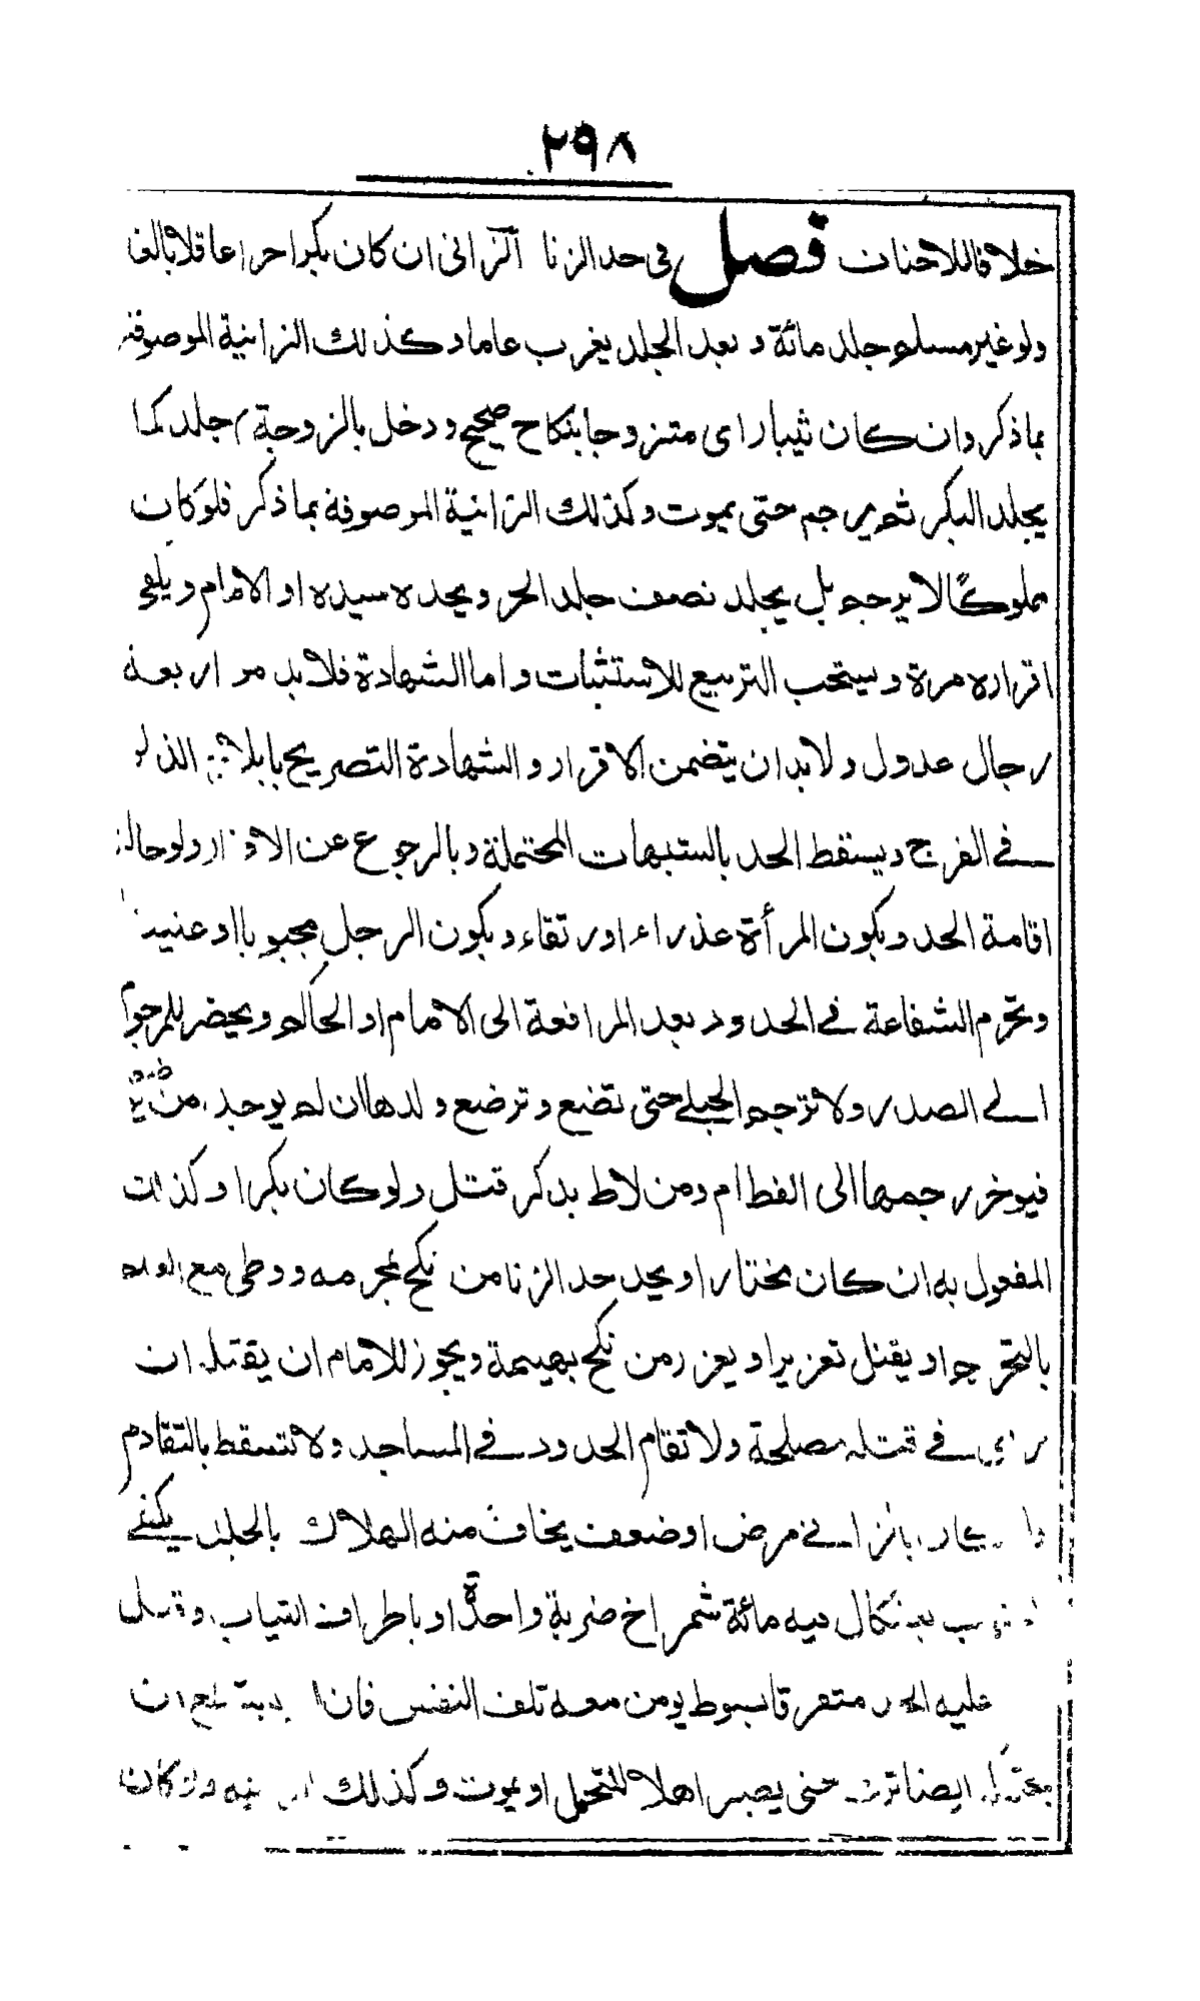 ٢٩٨
خلافا للاحناف فصل فى حد الزنا الزانى ان كان بكرا حرا عاقلا بالغا
ولو غير مسلم جلد مائة و بعد الجلد يغرب عاما وكذلك الزانية الموصوفة
بما ذكر وان كان ثيبا راى متزوجا بنكاح صحيح ودخل بالزوجة م جلد كما
يجلد البكر ثم يرجم حتى يموت وكذلك الزانية الموصوفة بما ذكر فلو كان
مملوكًا لا يرجم بل يجلد نصف جلد الحر ويحده سيده او الامام ويكفى
اقراره مرة ويستحب التربيع للاستثبات واما الشهادة فلا بد من اربعة
رجال عدول ولابد ان يتضمن الاقرار والشهادة التصريح بايلاج الذكر
فى الفرج ويسقط الحد بالشبهات المحتملة وبالرجوع عن الاقرار ولو حالة
اقامة الحد وبكون المرأة عذراء او رتقاء وبكون الرجل مجبوبا او عنينا
وتحرم الشفاعة فى الحدود بعد المرافعة الى الامام او الحاكم ويحضر للمرجوم
الى الصدر ولا ترجم الحبلى حتى تضع وترضع ولدها ان لم يوجد من يرضعه
فيوخر رجمها الى الفطام ومن لاط بذكر قتل ولو كان بكرا وكذلك
المفعول به ان كان مختارا ويحد حد الزنا من نكح محرمه ووطى مع العلم
بالتحريم او يقتل تعزيرا ويعزر من نكح بهيمة ويجوز للامام ان يقتله ان
راى فى قتله مصلحة ولا تقام الحدود فى المساجد ولا تسقط بالتقادم
وان كان بالزانى مرض او ضعف يخاف منه الهلاك بالجلد يكفى
بعثكال فيه مائة شمراخ ضربة واحدة او باطراف الثياب وقيل
عليه الحد متفرقا بسوط يومن معه تلف النفس فان
ايضا ترك حتى يصير اهلا للتحمل او يموت وكذلك وان كان